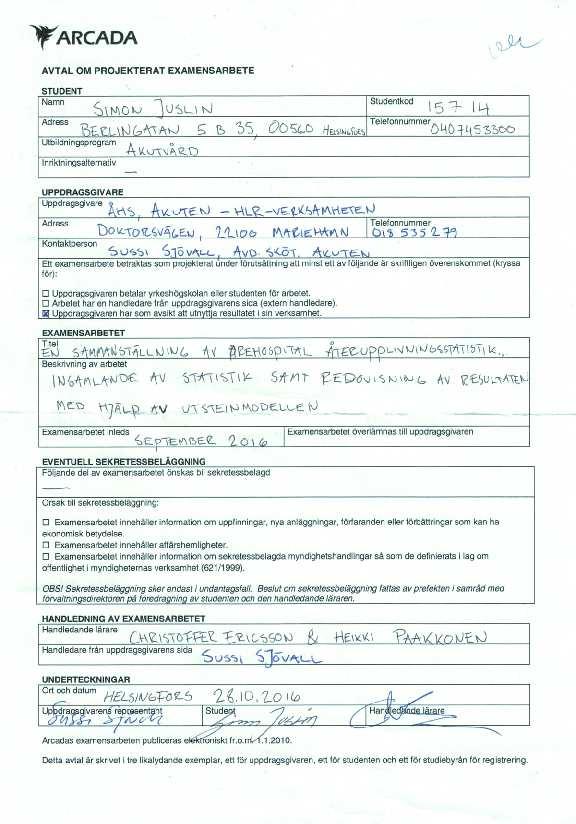 ARCADA
AVTAL OM PROJEKTERAT EXAMENSARBETE
STUDENT
Namn SIMON JUSLIN Studentkod 15714
Adress BERLINGATAN 5 B 35, 00560 HELSINGFORS Telefonnummer 0407453300
Utbildningsprogram AKUTVÅRD
Inriktningsalternativ —
UPPDRAGSGIVARE
Uppdragsgivare ÅHS, AKUTEN – HLR-VERKSAMHETEN
Adress DOKTORSVÄGEN, 22100 MARIEHAMN Telefonnummer 018 535 279
Kontaktperson SUSSI SJÖVALL, AVD.SKÖT. AKUTEN
Ett examensarbete betraktas som projekterat under förutsättning att minst ett av följande är skriftligen överenskommet (kryssa
för):
☐ Uppdragsgivaren betalar yrkeshögskolan eller studenten för arbetet.
☐ Arbetet har en handledare från uppdragsgivarens sica (extern handledare).
☒ Uppdragsgivaren har som avsikt att utnyttja resultatet i sin verksamhet.
EXAMENSARBETET
Titel
EN SAMMANSTÄLLNING AV PREHOSPITAL ÅTERUPPLIVNINGSSTATISTIK.
Beskrivning av arbetet
INSAMLANDE AV STATISTIK SAMT REDOVISNING AV RESULTATEN
MED HJÄLP AV UTSTEINMODELLEN
Examensarbetet inleds SEPTEMBER 2016 Examensarbetet överlämnas till uppdragsgivaren
EVENTUELL SEKRETESSBELÄGGNING
Följande del av examensarbetet önskas bli sekretessbelagd
—
Orsak till sekretessbeläggning:
☐ Examensarbetet innehåller information om uppfinningar, nya anläggningar, förfaranden eller förbättringar som kan ha
ekonomisk betydelse.
☐ Examensarbetet innehåller affärshemligheter.
☐ Examensarbetet innehåller information om sekretessbelagda myndighetshandlingar så som de definierats i lag om
offentlighet i myndigheternas verksamhet (621/1999).
OBS! Sekretessbeläggning sker endast i undantagsfall. Beslut om sekretessbeläggning fattas av prefekten i samråd med
förvaltningsdirektören på föredragning av studenten och den handledande läraren.
HANDLEDNING AV EXAMENSARBETET
Handledande lärare CHRISTOFFER ERICSSON & HEIKKI PAAKKONEN
Handledare från uppdragsgivarens sida SUSSI SJÖVALL
UNDERTECKNINGAR
Ort och datum HELSINGFORS 28.10.2016
Uppdragsgivarens representant Student Handledande lärare
Sussi Sjövall Simon Juslin
Arcadas examensarbeten publiceras elektroniskt fr.o.m. 1.1.2010.
Detta avtal är skrivet i tre likalydande exemplar, ett för uppdragsgivaren, ett för studenten och ett för studiebyrån för registrering.